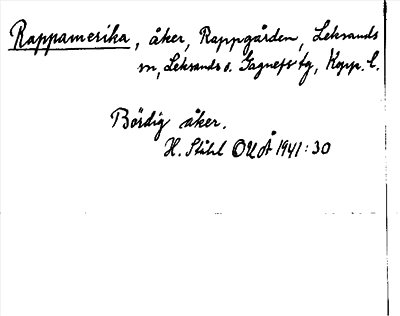 Rappamerika, åker, Rappgården, Leksands
sn, Leksands o. Gagnefs tg, Kopp. l.
Bördig åker.
H. Ståhl OUÅ 1941:30